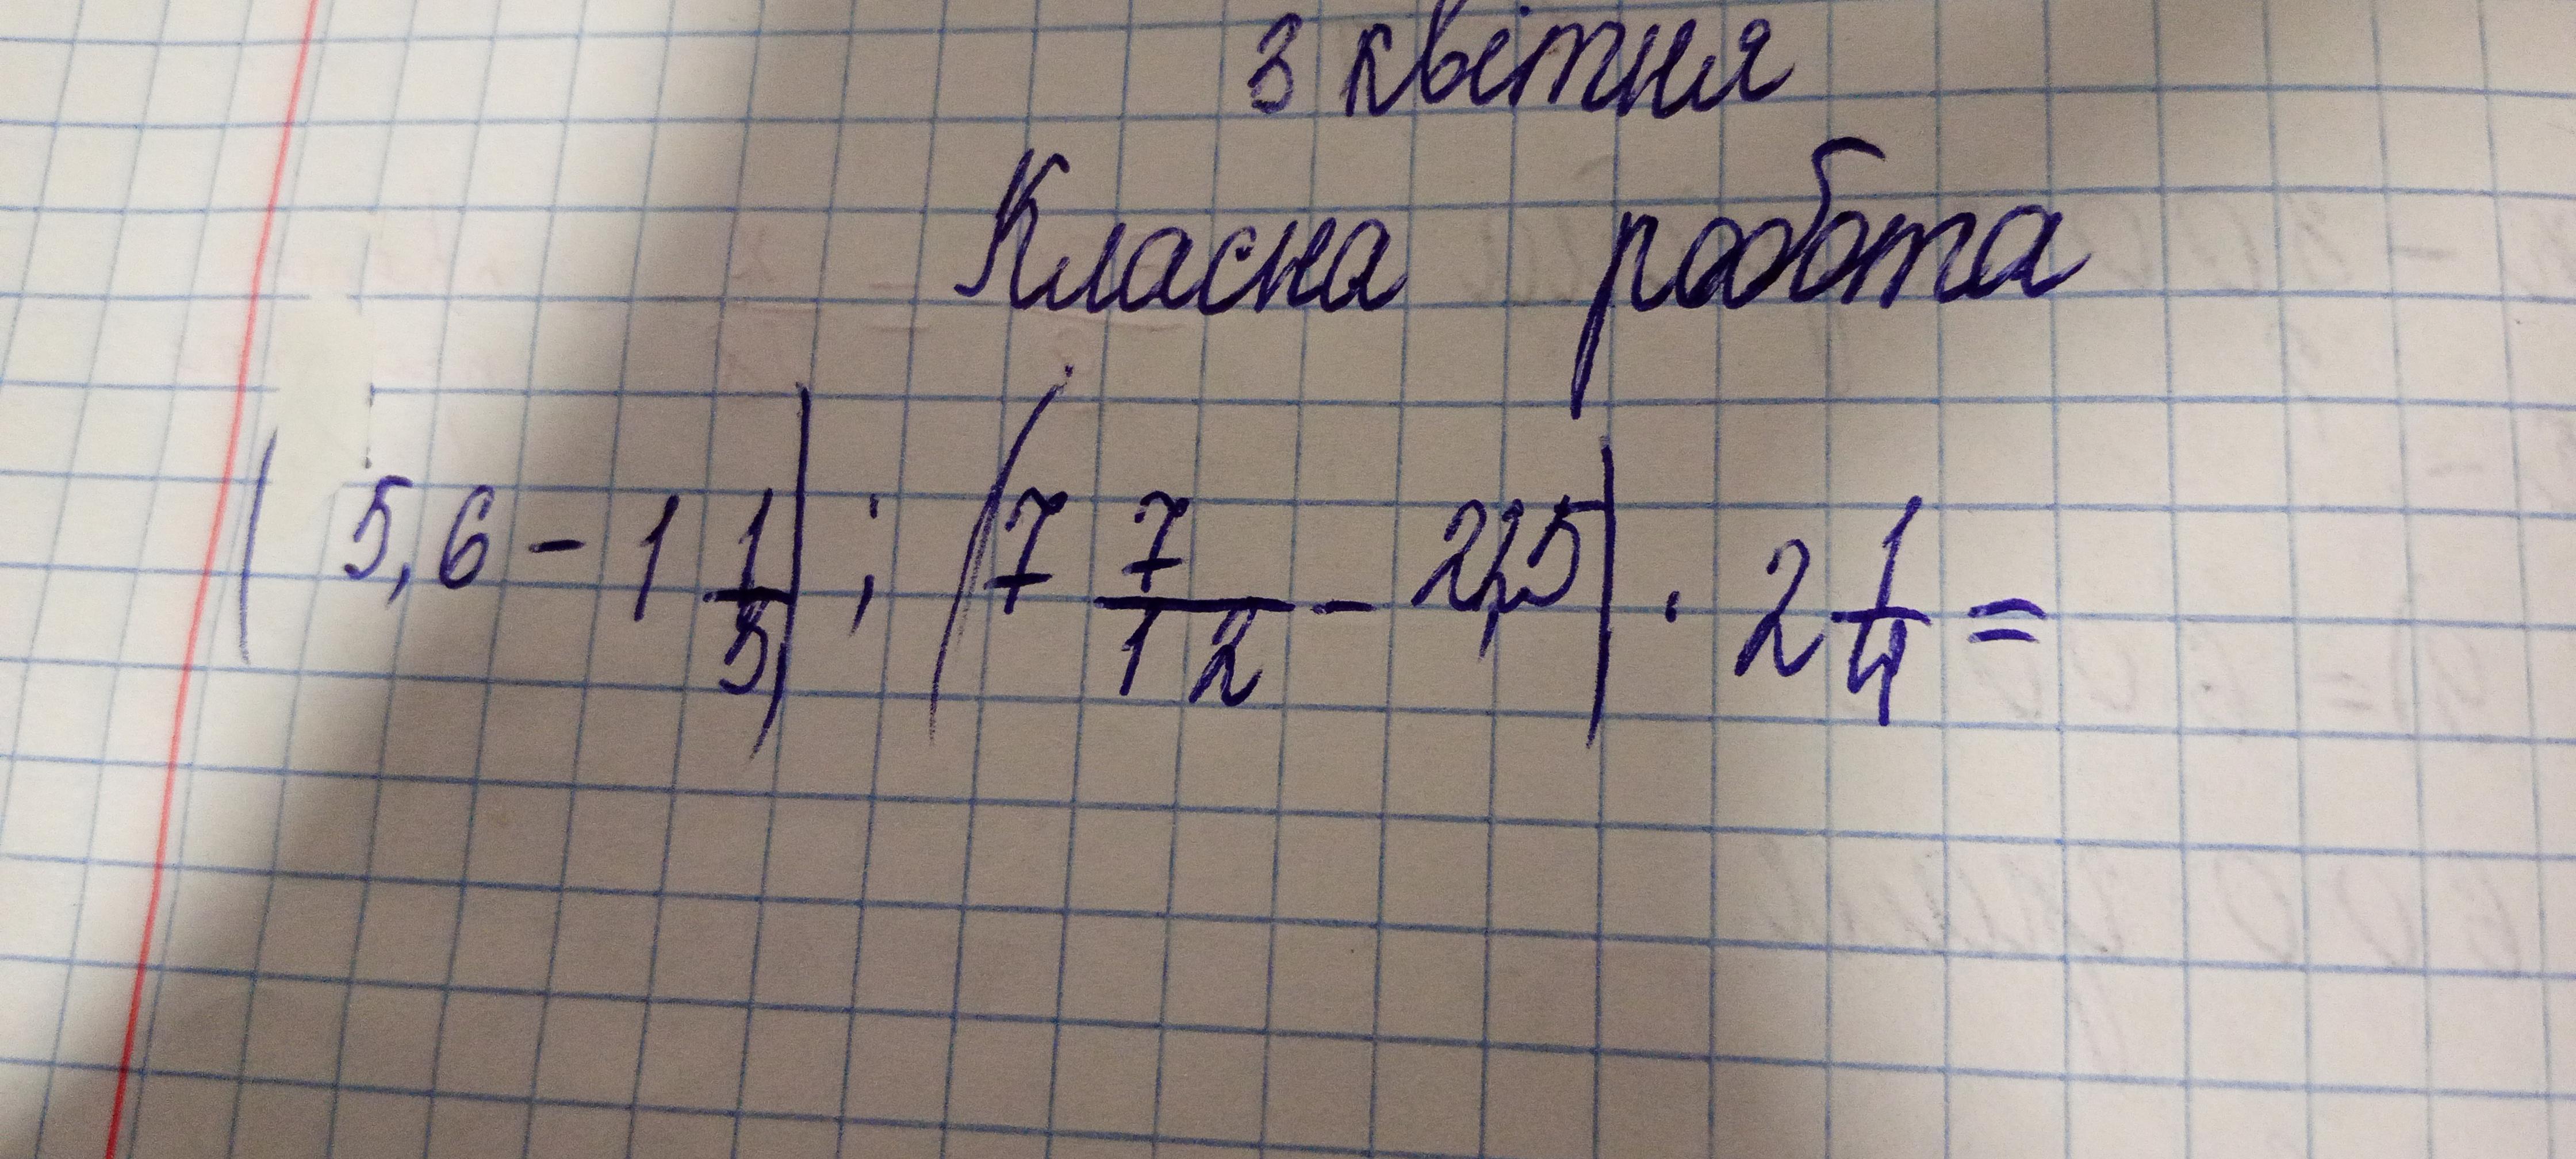 3 квітня
Класна робота
(5,6 - 1 1/5) : (7 7/12 - 2,25) · 2 1/4 =